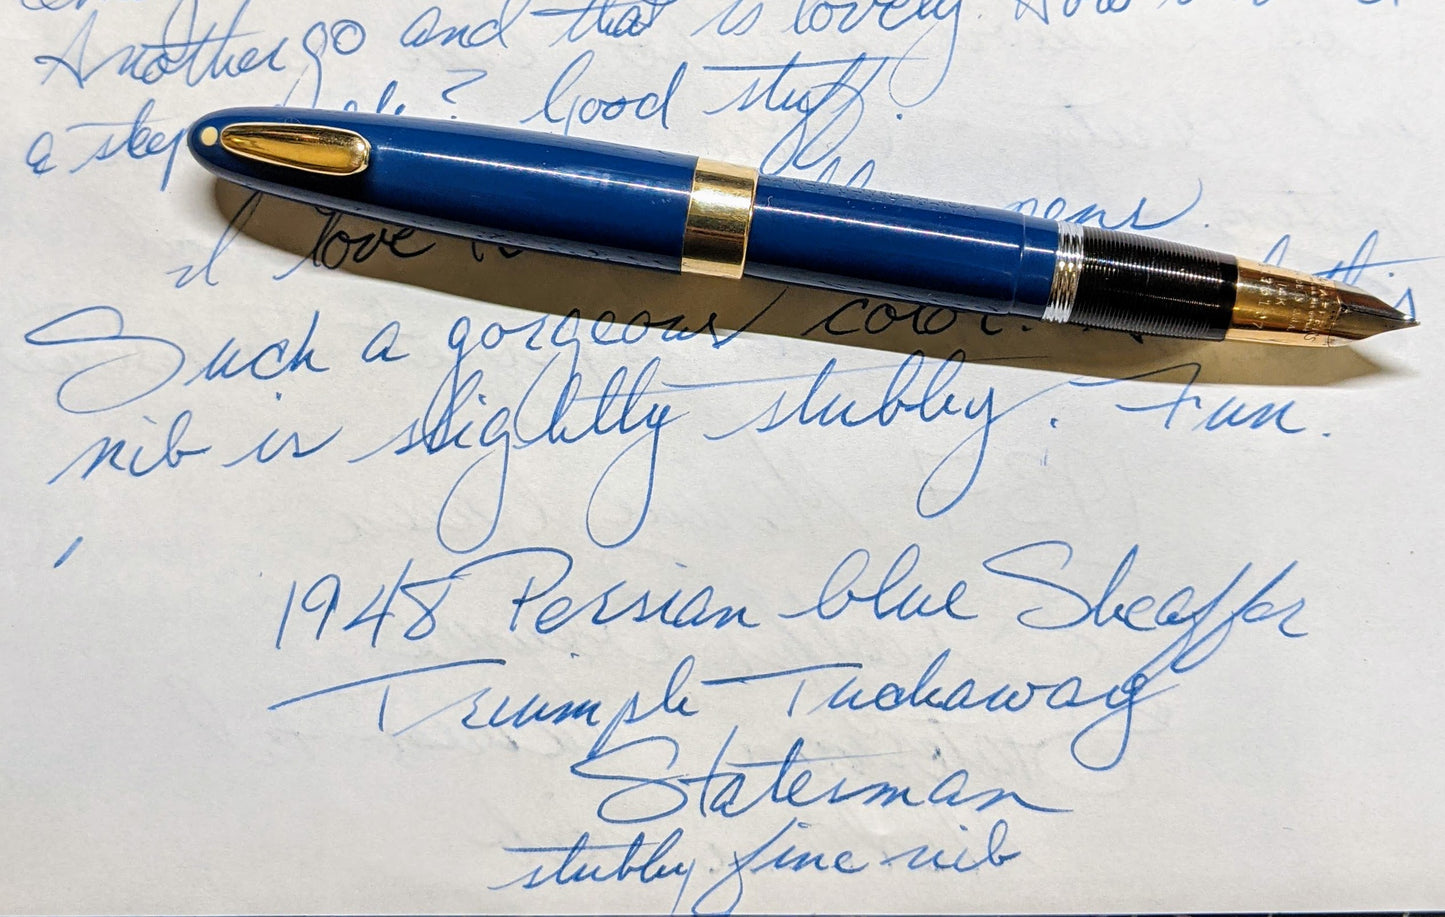 Another go and that is lovely. How
a step ? Good stuff.
I love pens.
this
Such a gorgeous color!
nib is slightly stubby. Fun.
1948 Persian blue Sheaffer
Triumph Tuckaway
Staterman
stubby fine nib